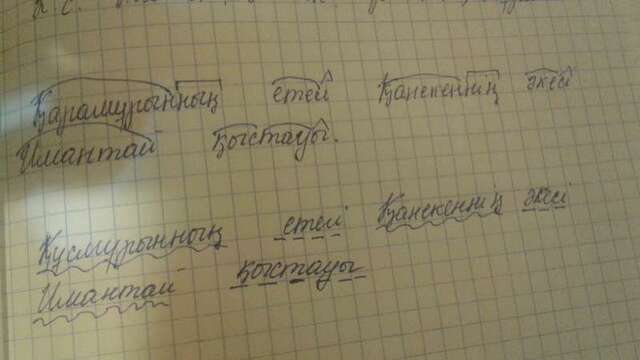 Қарамұрынның етегі Қанекеннің әкесі
Имантай қыстауы.
Құсмұрынның етегі Қанекеннің әкесі
Имантай қыстауы